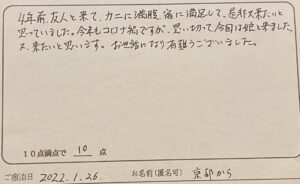 4年前、友人と来て、カニに満腹、宿に満足して、是非又来たいと
思っていました。今年もコロナ禍ですが、思い切って今回は娘と来ました。
又、来たいと思います。お世話になり有難うございました。
10点満点で 10 点
ご宿泊日 2022.1.26. お名前(匿名可) 京都から